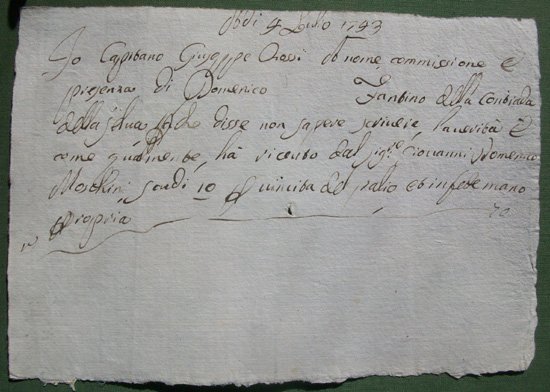 Adi 4 Luglio 1793
Io Capitano Giuseppe Rossi di nome commissione e
presenza di Domenico Fantino della Contrada
della Selva disse non sapere scrivere, la verità è
come qualmente, ha ricevuto dal Sig.re Giovanni Domenico
Moschini, scudi 10 vincita del palio et in fede mano
Propria